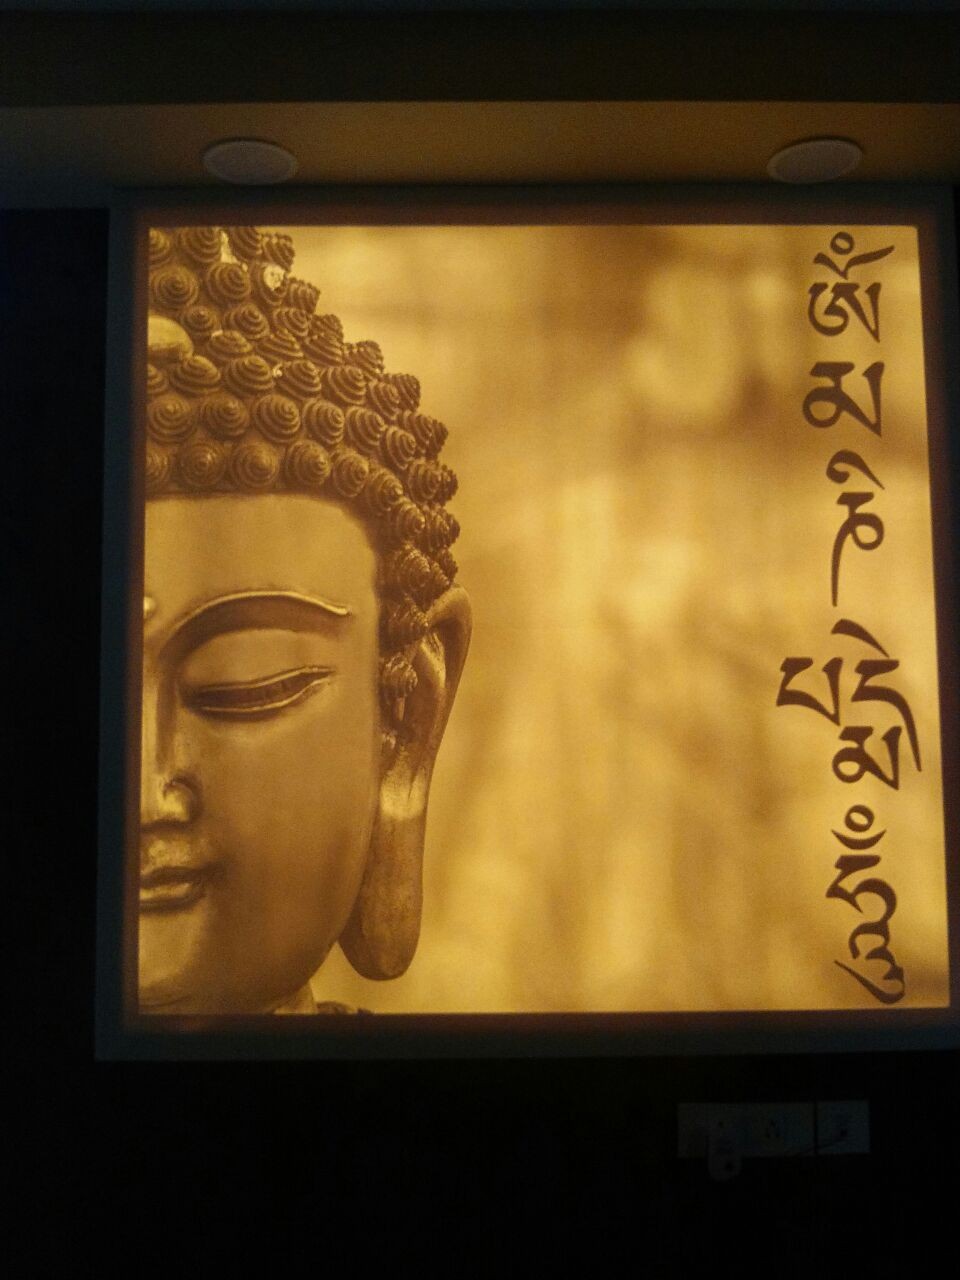 ཨོཾ མ ཎི པདྨེ ཧཱུྃ